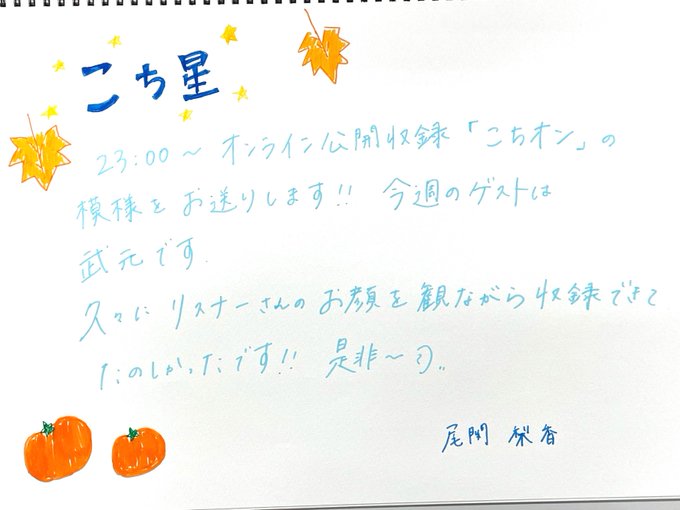 こち星
23:00〜 オンライン公開収録「こちオン」の
模様をお送りします!! 今週のゲストは
武元です.
久々にリスナーさんのお顔を観ながら収録できて
たのしかったです!! 是非〜:)..
尾関 梨香